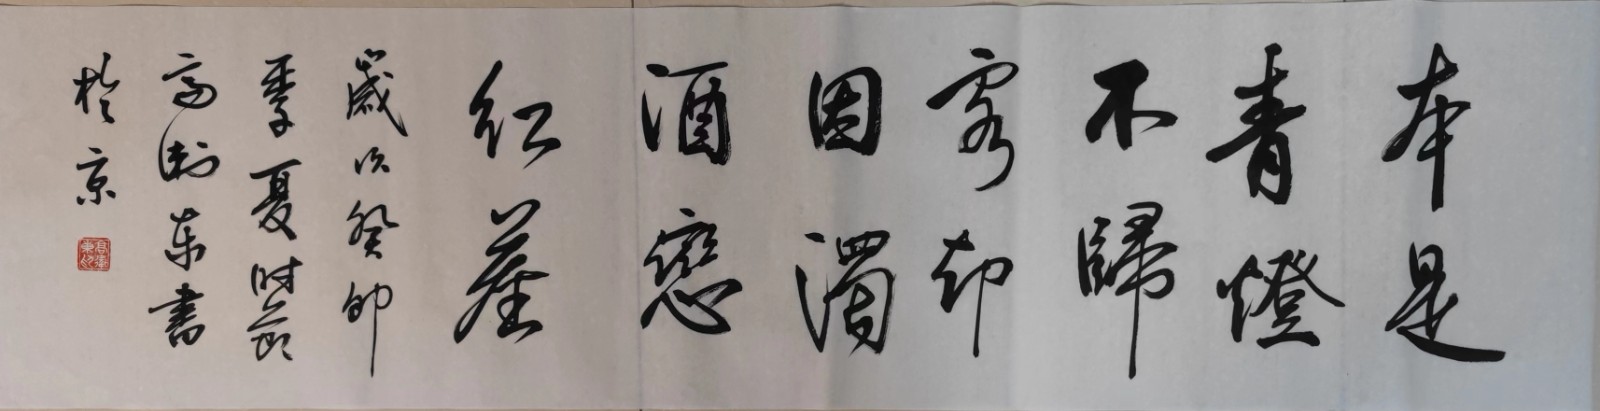 本是
青燈
不歸
客却
因濁
酒戀
紅塵
歲次癸卯
季夏時節
高衛東書
於京
高衛
東印